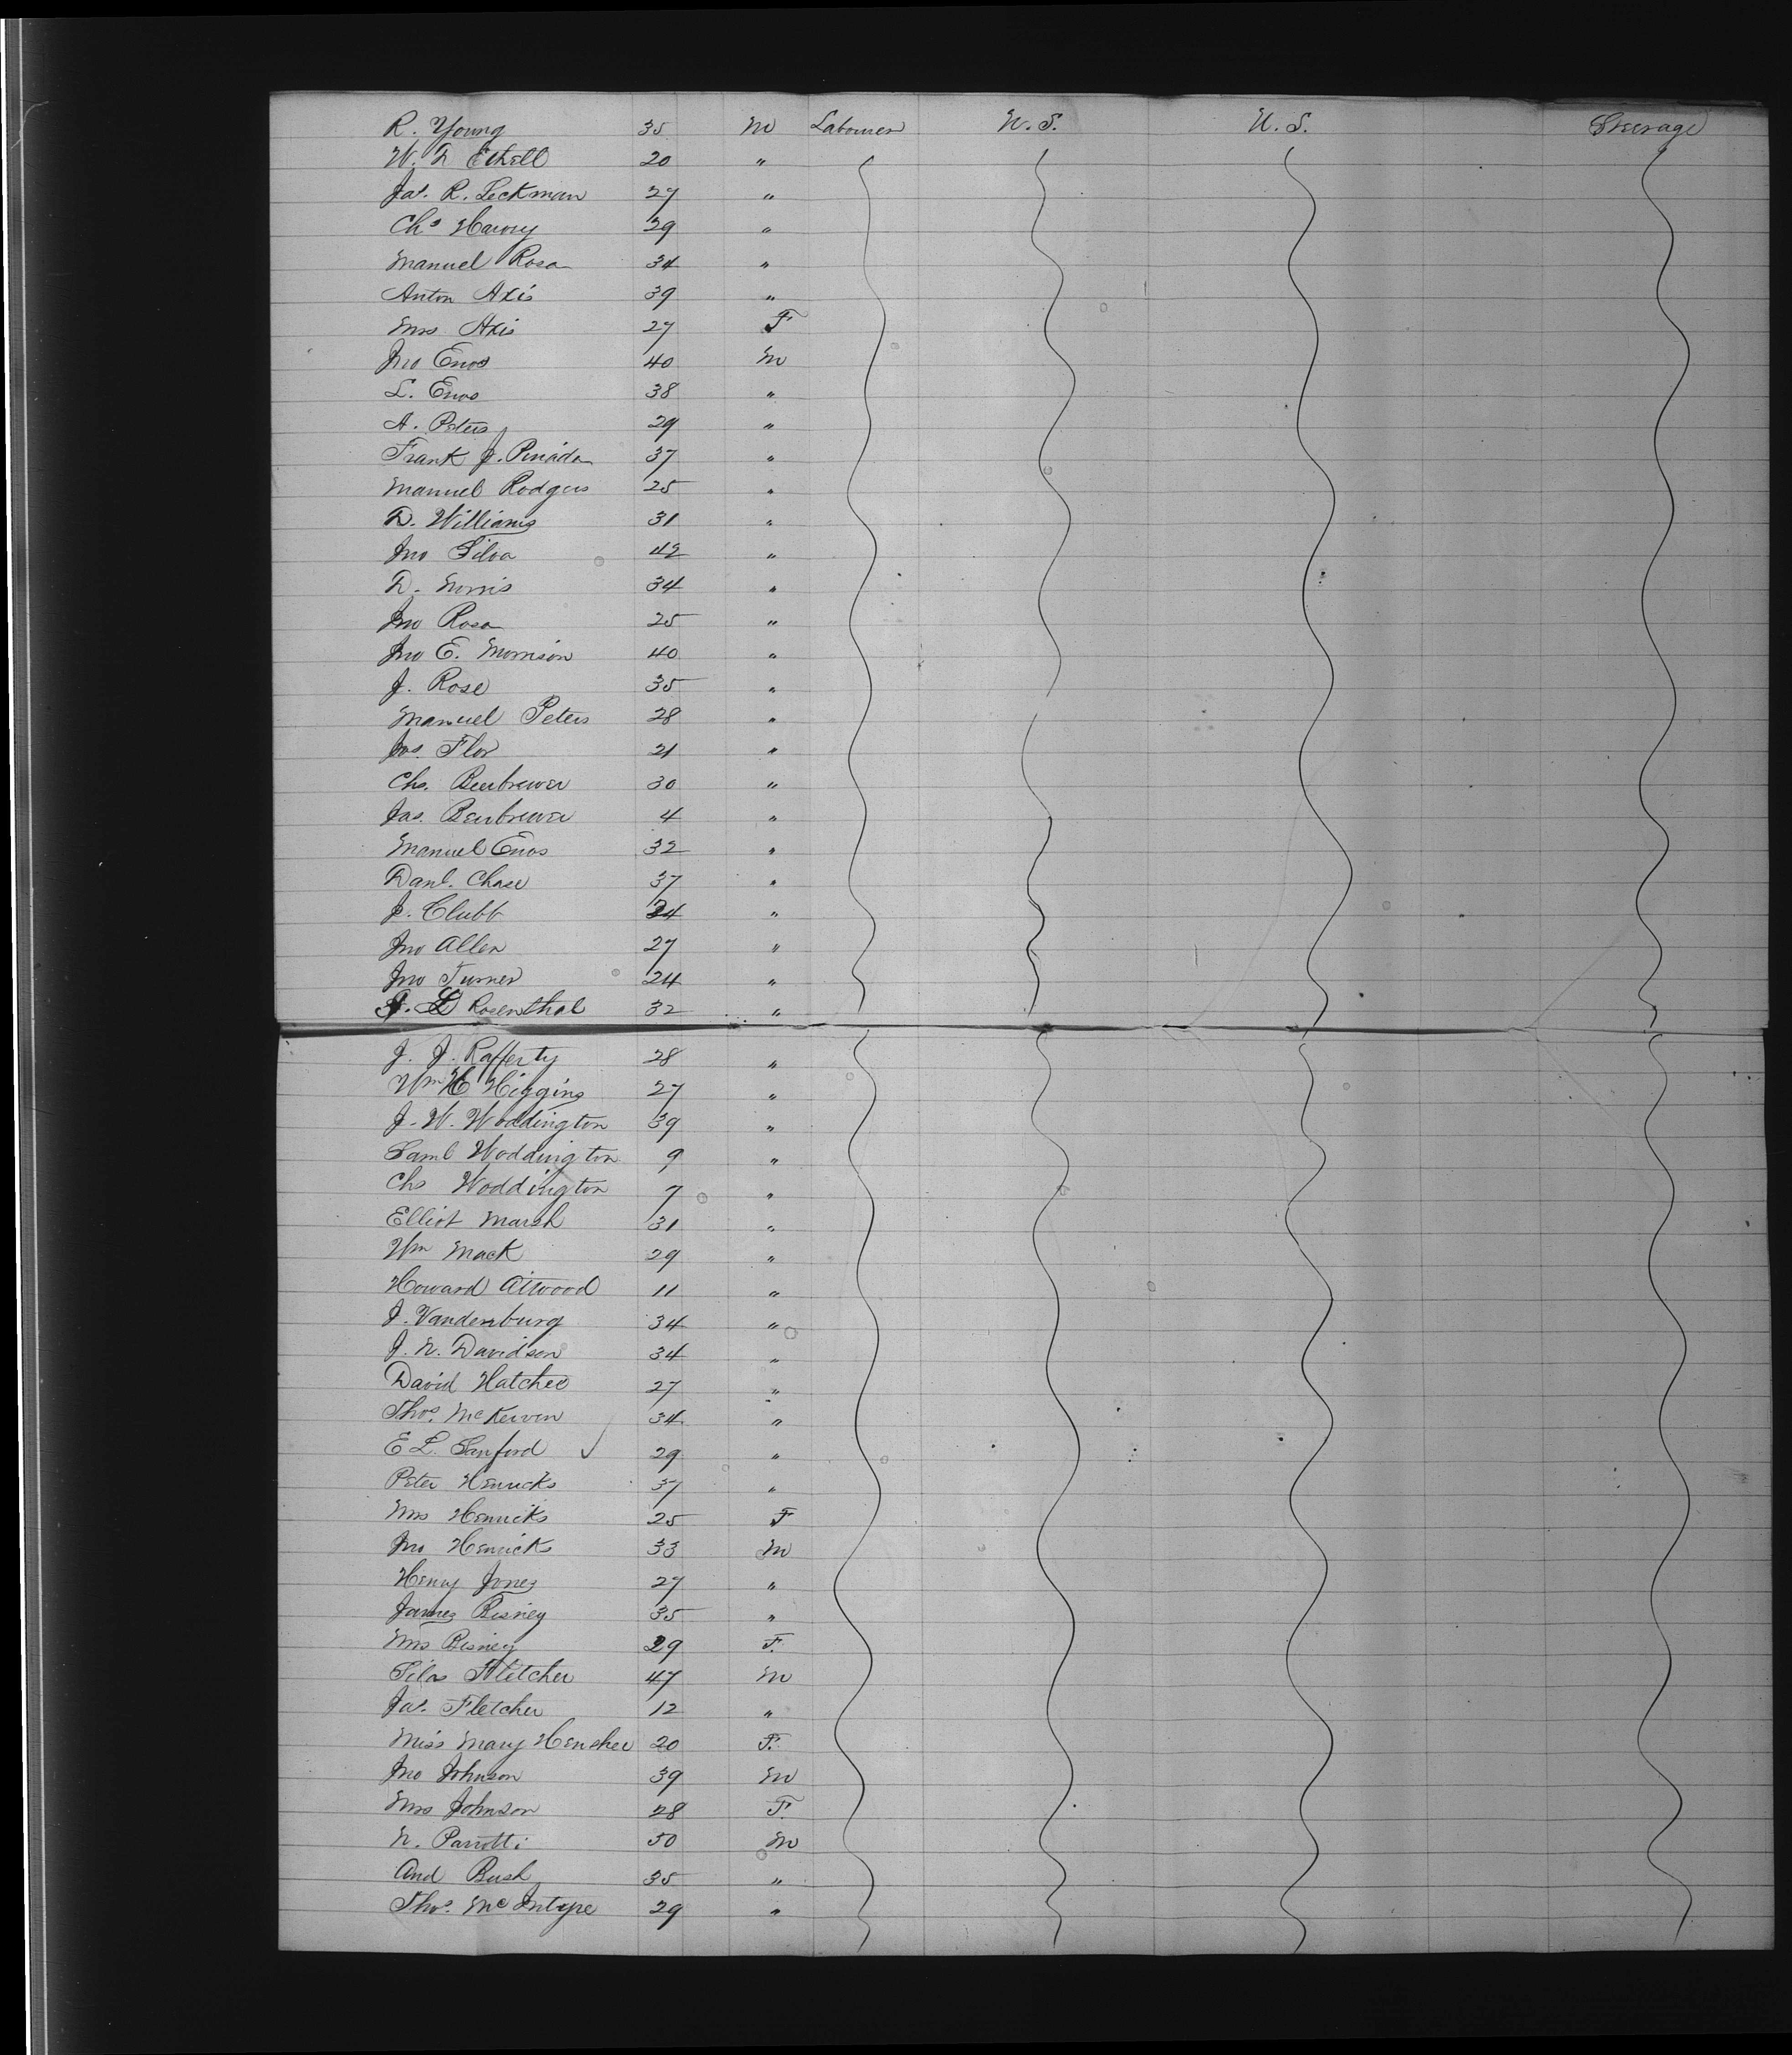 R. Young 35 M Labourer U.S. U.S. Steerage
W. D Ethell 20 "
Jas. R. Leckman 27 "
Chs Harvey 29 "
Manuel Rosa 34 "
Anton Axis 39 "
Mrs Axis 27 F
Jno Enos 40 M
L. Enos 38 "
A. Peters 29 "
Frank J. 37 "
Manuel Rodgers 25 "
D. Williams 31 "
Jno Silva 42 "
D. Norris 34 "
Jno Rosa 25 "
Jno E. Morrison 40 "
J. Rose 35 "
Manuel Peters 28 "
Jas. Flor 21 "
Chs. Beerbrewer 30 "
Jas. Beerbrewer 4 "
Manuel Enos 32 "
Danl. Chase 37 "
J. Clubb 24 "
Jno Allen 27 "
Jno Turner 24 "
J. L Rosenthal 32 "
J. J. Rafferty 28 "
Wm H Higgins 27 "
J. W. Woddington 39 "
Saml Woddington 9 "
Chs Woddington 7 "
Elliot Marsh 31 "
Wm Mack 29 "
Howard Atwood 11 "
J. Vandenburg 34 "
J. N. Davidson 34 "
David Hatcher 27 "
Thos. McKerven 34 "
E L. Sanford 29 "
Peter Henricks 37 "
Mrs Henricks 25 F
Jno Henricks 33 M
Henry Jones 27 "
James Bisney 35 "
Mrs Bisney 29 F.
Silas Fletcher 47 M
Jas. Fletcher 12 "
Miss Mary Hensher 20 F.
Jno Johnson 39 M
Mrs Johnson 28 F.
N. Parrotti 50 M
And Bush 35 "
Thos. McIntyre 29 "